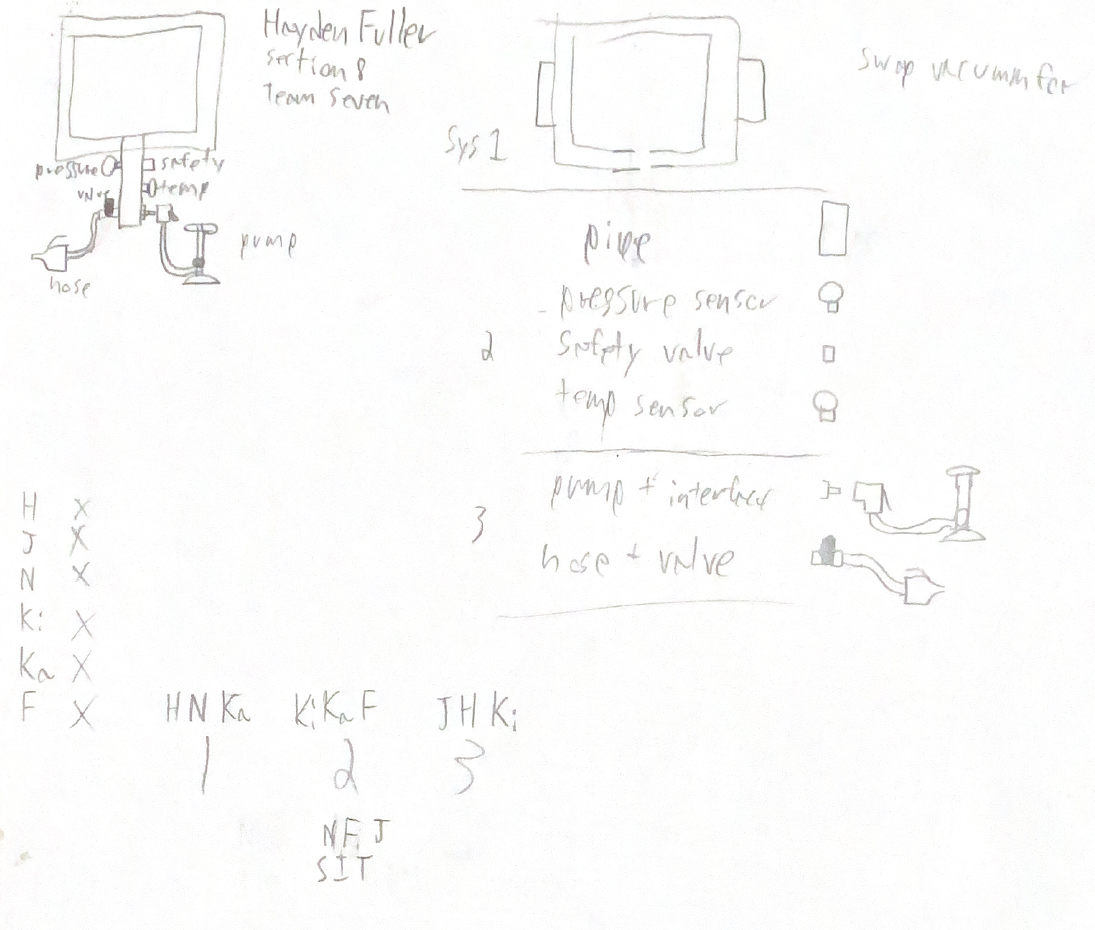 Hayden Fuller
section 8
Team Seven
pressure
safety
valve
temp
hose
pump
Sys 1
swap vacumm for
pipe
pressure sensor
2
Safety valve
temp sensor
pump + interface
3
hose + valve
H X
J X
N X
Ki X
Ka X
F X
H N Ka
Ki Ka F
J H Ki
1
2
3
N F J
S I T